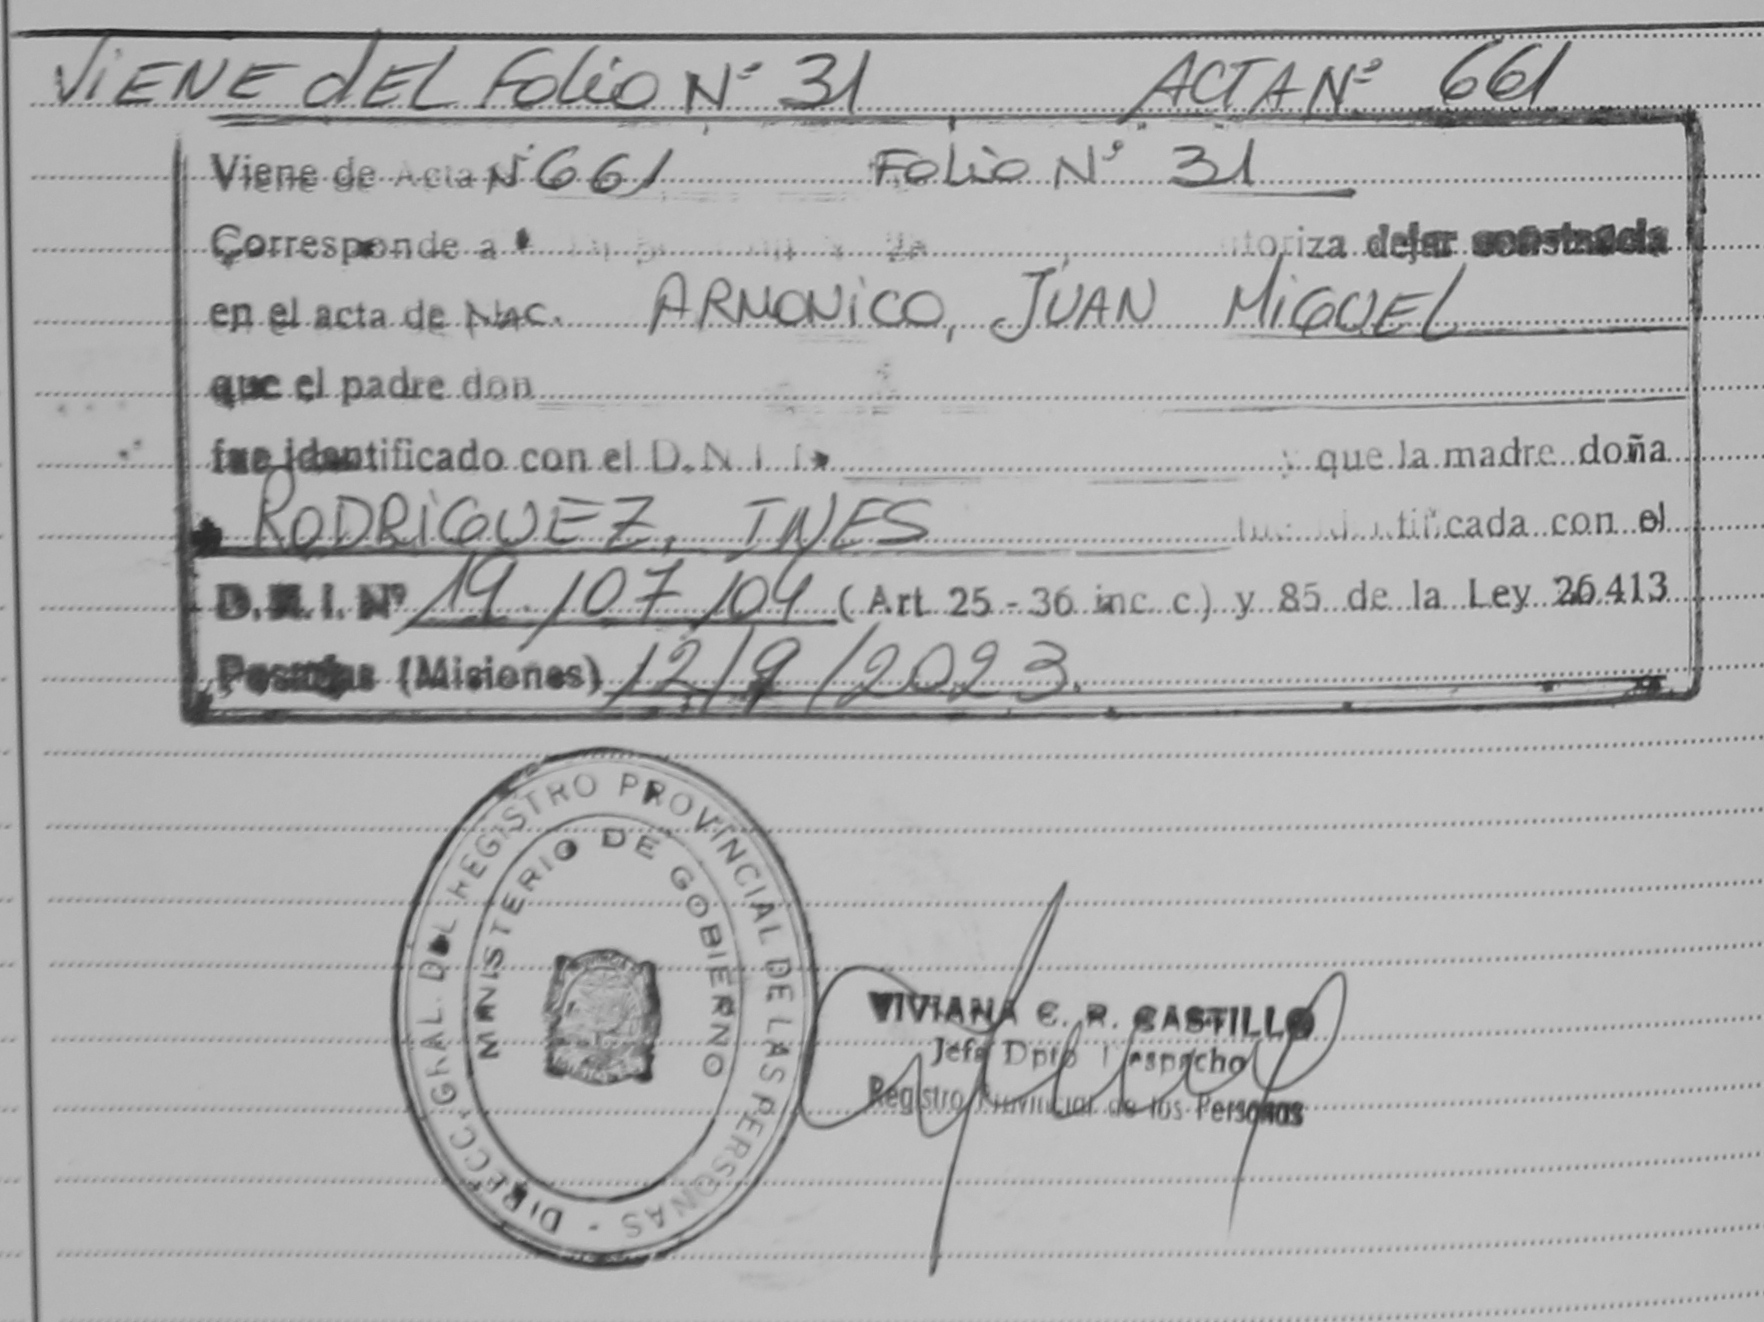 ViENE dEL Folio N° 31 ACTA N° 661
Viene de Acta N° 661 Folio N° 31
Corresponde a utoriza dejar constancia
en el acta de NAC. ARMONiCO, JUAN MiGUEL
que el padre don
fue identificado con el D.N.I. y que la madre doña
RODRiGUEZ, INES identificada con el
D.N.I. Nº 19/07/04 (Art. 25 - 36 inc. c) y 85 de la Ley 26.413
Posadas (Misiones) 12/9/2023.
DIRECC. GRAL. DEL REGISTRO PROVINCIAL DE LAS PERSONAS -
MINISTERIO DE GOBIERNO
VIVIANA C. R. CASTILLO
Jefa Dpto Despacho
Registro Provincial de las Personas